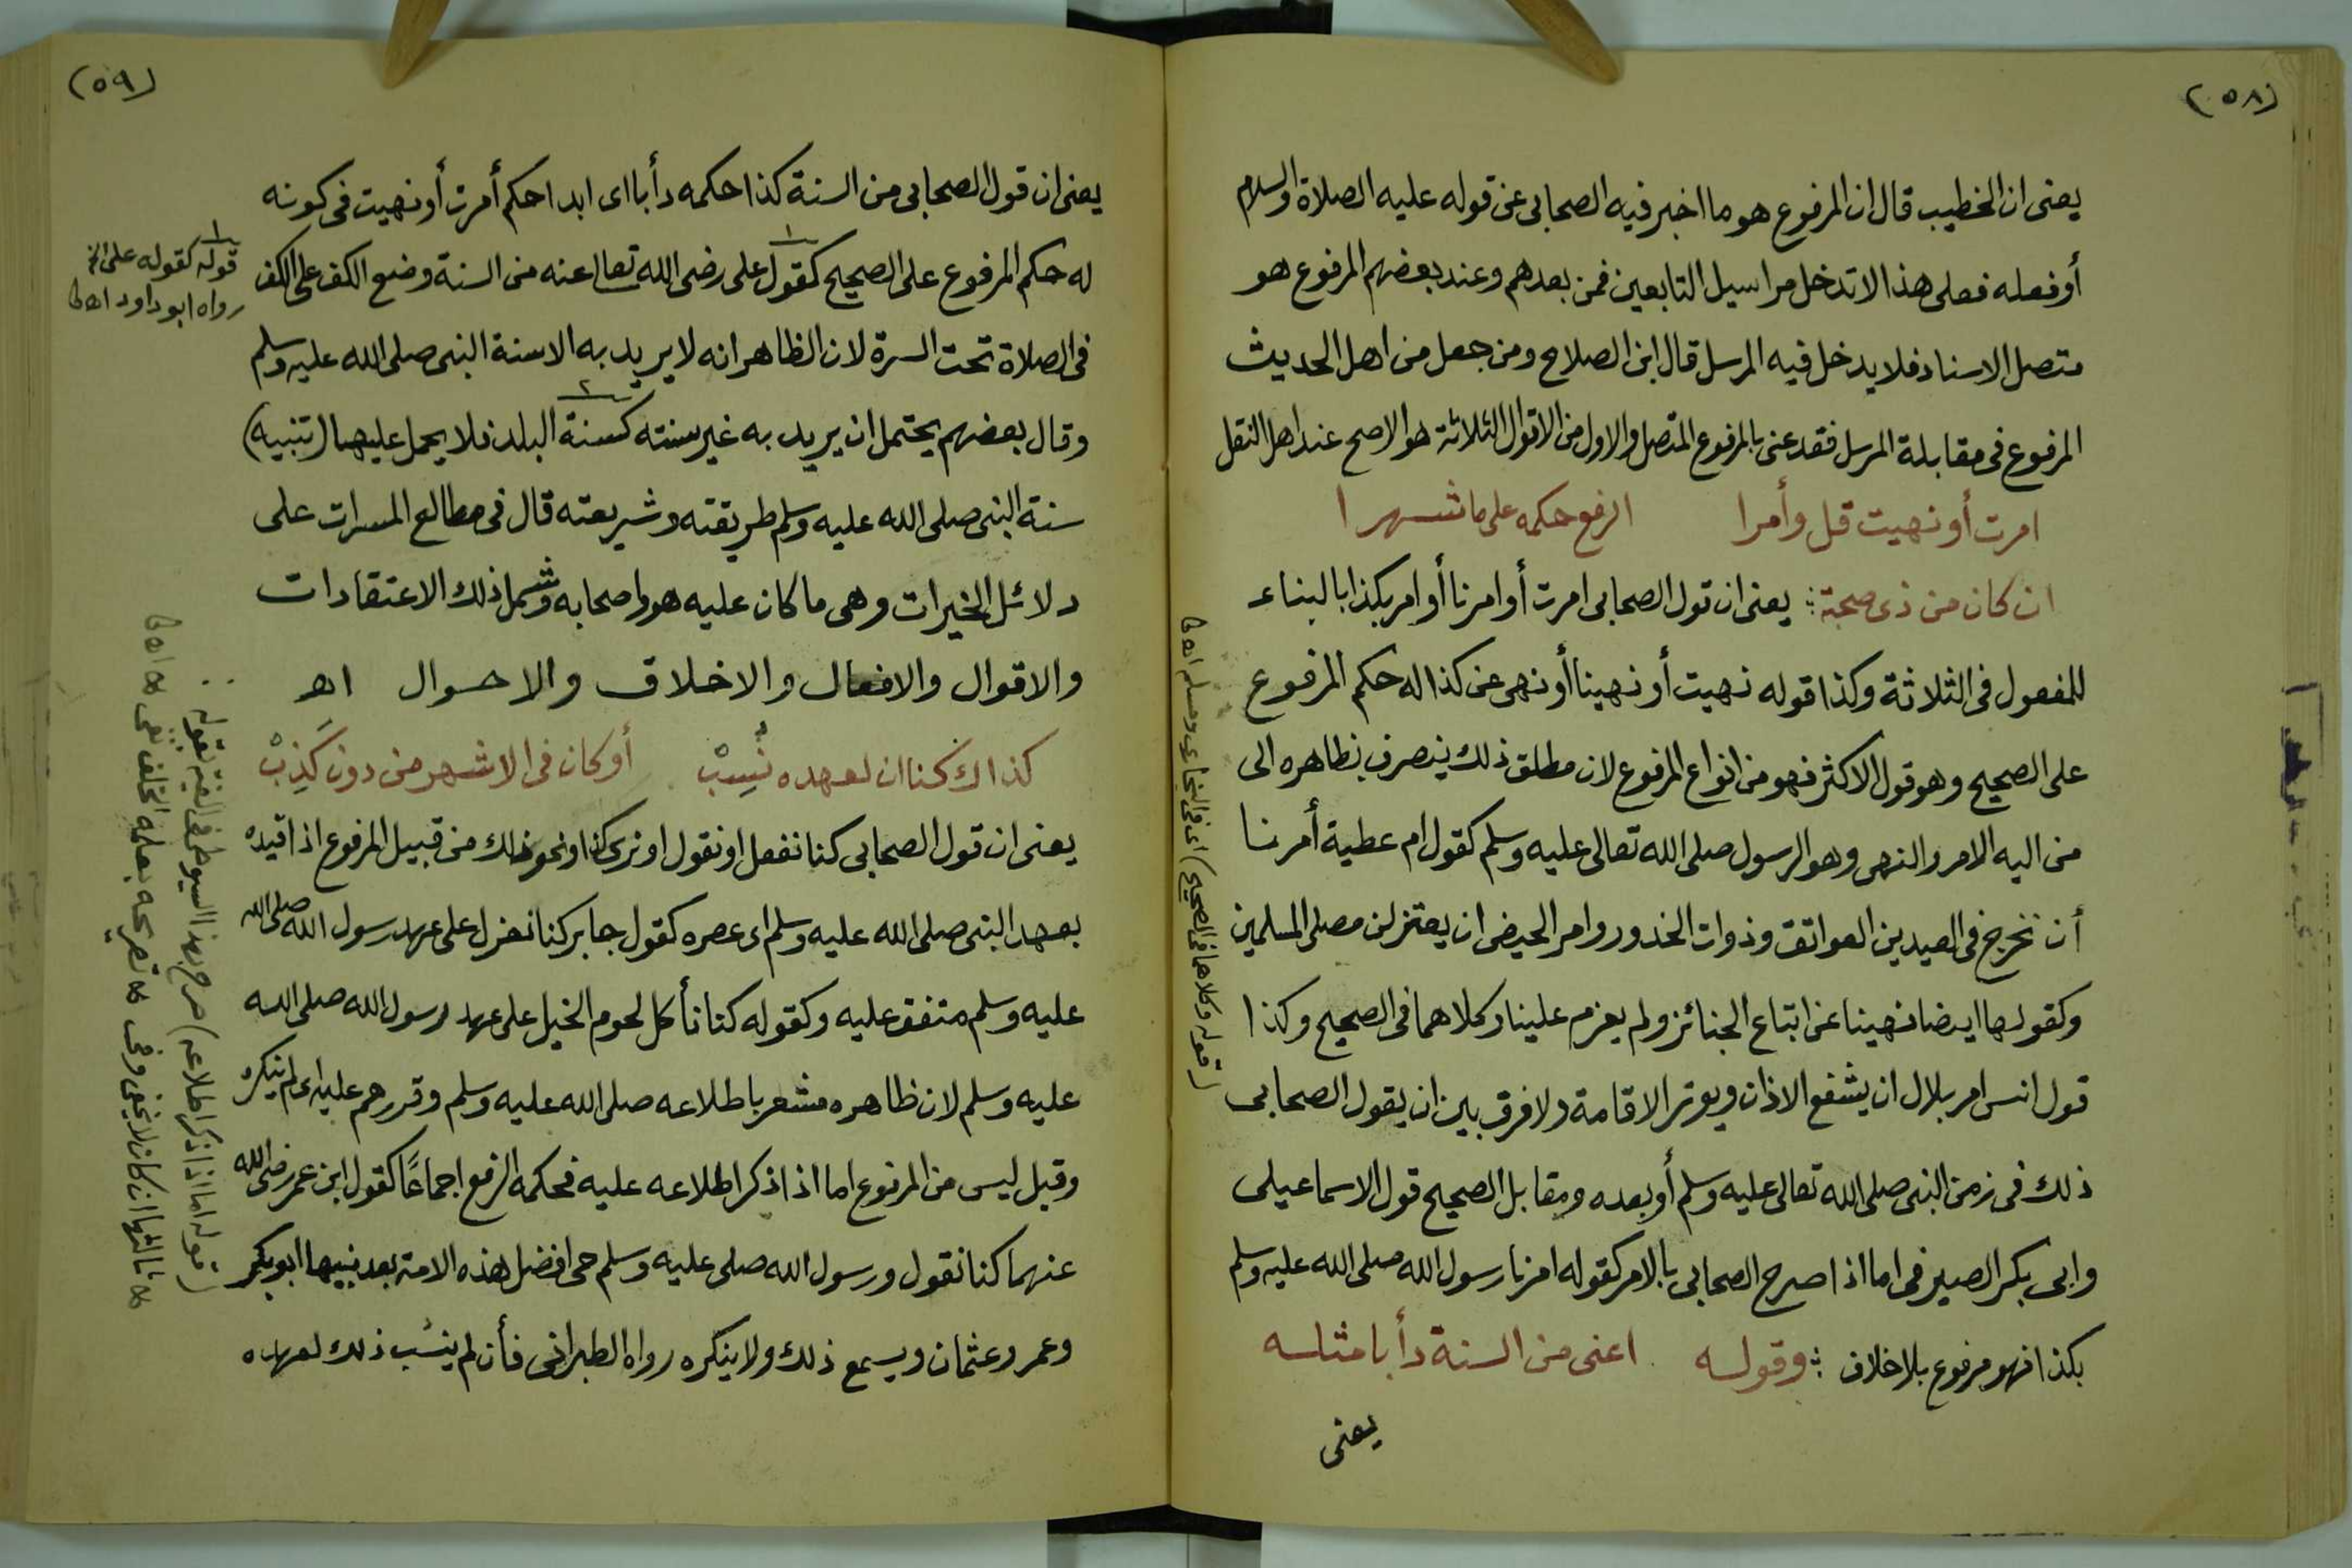 (٥٨)
يعنى ان الخطيب قال ان المرفوع هو ما اخبر فيه الصحابى عن قوله عليه الصلاة والسلام
أو فعله فعلى هذا لا تدخل مراسيل التابعين فمن بعدهم وعند بعضهم المرفوع هو
متصل الاسناد فلا يدخل فيه المرسل قال ابن الصلاح ومن جعل من اهل الحديث
المرفوع فى مقابلة المرسل فقد عنى بالمرفوع المتصل والاول من الاقوال الثلاثة هو الاصح عند اهل النقل
امرت أو نهيت قل وأمرا الرفع حكمه على ما شهرا
ان كان من ذى صحبة ؛ يعنى ان قول الصحابى امرت أو امرنا أو امر بكذا بالبناء
للمفعول فى الثلاثة وكذا قوله نهيت أو نهينا أو نهى عن كذا له حكم المرفوع
على الصحيح وهو قول الاكثر فهو من انواع المرفوع لان مطلق ذلك ينصرف بظاهره الى
من اليه الامر والنهى وهو الرسول صلى الله تعالى عليه وسلم كقول ام عطية أمرنا
أن نخرج فى العيدين العواتق وذوات الخدور وامر الحيض ان يعتزلن مصلى المسلمين
وكقولها ايضا نهينا عن اتباع الجنائز ولم يعزم علينا وكلاهما فى الصحيح وكذا
قول انس امر بلال ان يشفع الاذان ويوتر الاقامة ولا فرق بين ان يقول الصحابى
ذلك فى زمن النبى صلى الله تعالى عليه وسلم أو بعده ومقابل الصحيح قول الاسماعيلى
وابى بكر الصيرفى اما اذا صرح الصحابى بالامر كقوله امرنا رسول الله صلى الله عليه وسلم
بكذا فهو مرفوع بلا خلاف ؛ وقوله اعنى من السنة دأبا مثله
يعنى
(قوله وكلاهما فى الصحيح) اى فى البخارى ومسلم اه ط
(٥٩)
يعنى ان قول الصحابى من السنة كذا حكمه دأبا اى ابدا حكم أمرت أو نهيت فى كونه
له حكم المرفوع على الصحيح كقول على رضى الله تعالى عنه من السنة وضع الكف على الكف
فى الصلاة تحت السرة لان الظاهر انه لا يريد به الا سنة النبى صلى الله عليه وسلم
وقال بعضهم يحتمل ان يريد به غير سنته كسنة البلد فلا يحمل عليها (تنبيه)
سنة النبى صلى الله عليه وسلم طريقته وشريعته قال فى مطالع المسرات على
دلائل الخيرات وهى ما كان عليه هو واصحابه وشمل ذلك الاعتقادات
والاقوال والافعال والاخلاق والاحوال اهـ
كذاك كنا ان لعهده نُسِبْ أو كان فى الاشهر من دون كَذِبْ
يعنى ان قول الصحابى كنا نفعل او نقول او نرى كذا ونحو ذلك من قبيل المرفوع اذا قيده
بعهد النبى صلى الله عليه وسلم اى عصره كقول جابر كنا نعزل على عهد رسول الله صلى الله
عليه وسلم متفق عليه وكقوله كنا نأكل لحوم الخيل على عهد رسول الله صلى الله
عليه وسلم لان ظاهره مشعر باطلاعه صلى الله عليه وسلم وقررهم عليه اى لم ينكره
وقيل ليس من المرفوع اما اذا ذكر اطلاعه عليه فحكمه الرفع اجماعًا كقول ابن عمر رضى الله
عنهما كنا نقول ورسول الله صلى عليه وسلم حى افضل هذه الامة بعد نبيها ابو بكر
وعمر وعثمان ويسمع ذلك ولا ينكره رواه الطبرانى فأن لم ينسب ذلك لعهده
قوله كقوله على الخ
رواه ابو داود اه ط
(قوله اما اذا ذكر اطلاعه) صرح بهذا السيوطى فى الفيته بقوله